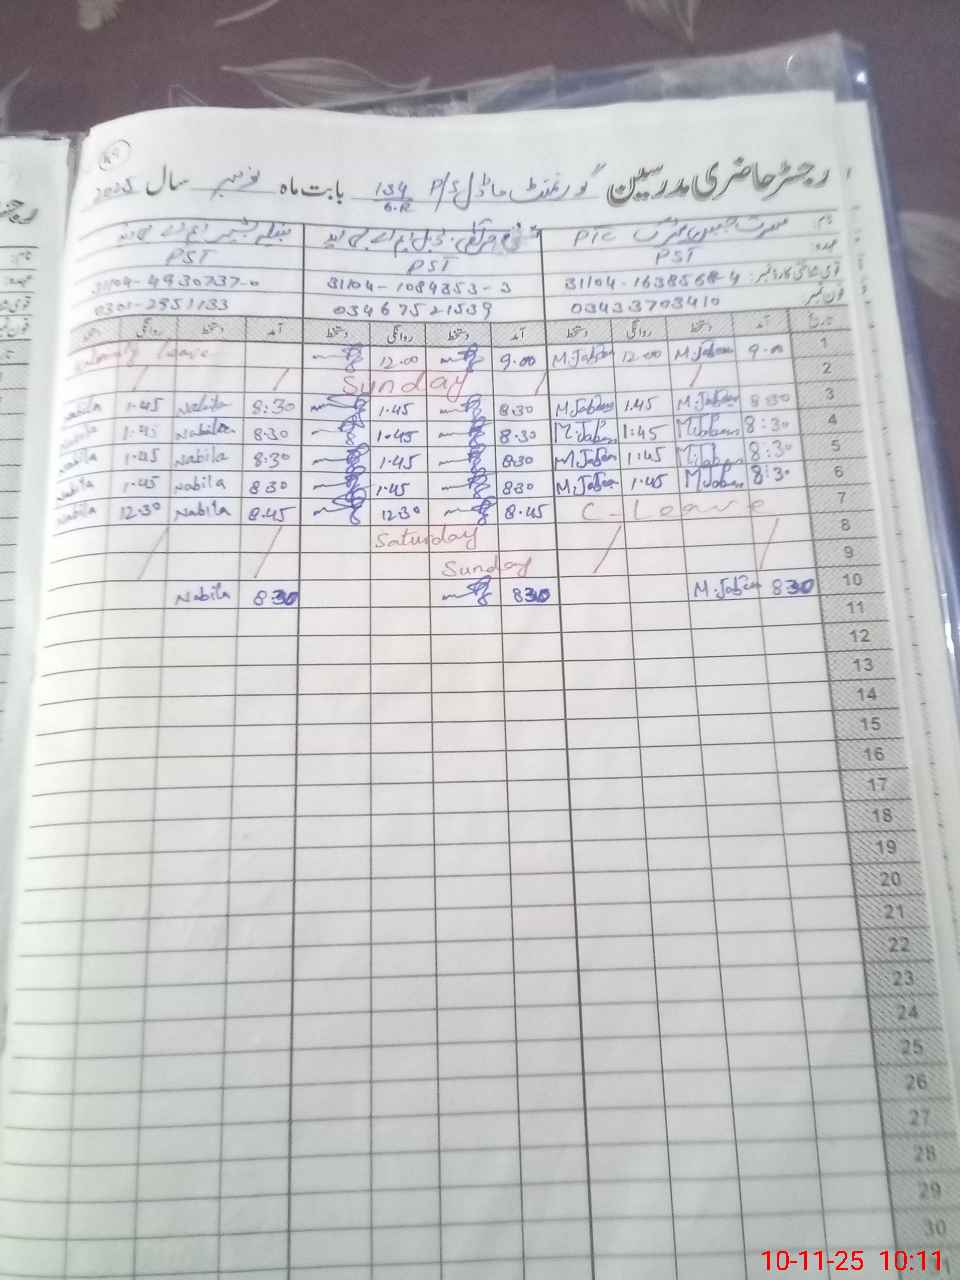 رجسٹر حاضری مدرسین گورنمنٹ ماڈل P/S 134/6.R بابت ماہ نومبر سال 2025
نام
PTC
عہدہ PST PST PST
قومی شناختی کارڈ نمبر: 31104-1638568-4 31104-1084353-3 31104-4930737-0
فون نمبر 03433703410 03467521539 0301-2951133
تاریخ آمد دستخط روانگی دستخط آمد دستخط روانگی دستخط آمد دستخط روانگی دستخط
1 9.00 M.Jabeen 12.00 M.Jabeen 9.00 12.00 leave
2 Sunday
3 8:30 M.Jabeen 1.45 M.Jabeen 8.30 1.45 8:30 Nabila 1.45 Nabila
4 8:30 M.Jabeen 1:45 M.Jabeen 8.30 1.45 8.30 Nabila 1.45 Nabila
5 8:30 M.Jabeen 1:45 M.Jabeen 8.30 1.45 8.30 Nabila 1.45 Nabila
6 8:30 M.Jabeen 1.45 M.Jabeen 8.30 1.45 8.30 Nabila 1.45 Nabila
7 C-Leave 8.45 12.30 8.45 Nabila 12.30 Nabila
8 Saturday
9 Sunday
10 830 M.Jabeen 830 830 Nabila
11
12
13
14
15
16
17
18
19
20
21
22
23
24
25
26
27
28
29
30
10-11-25 10:11